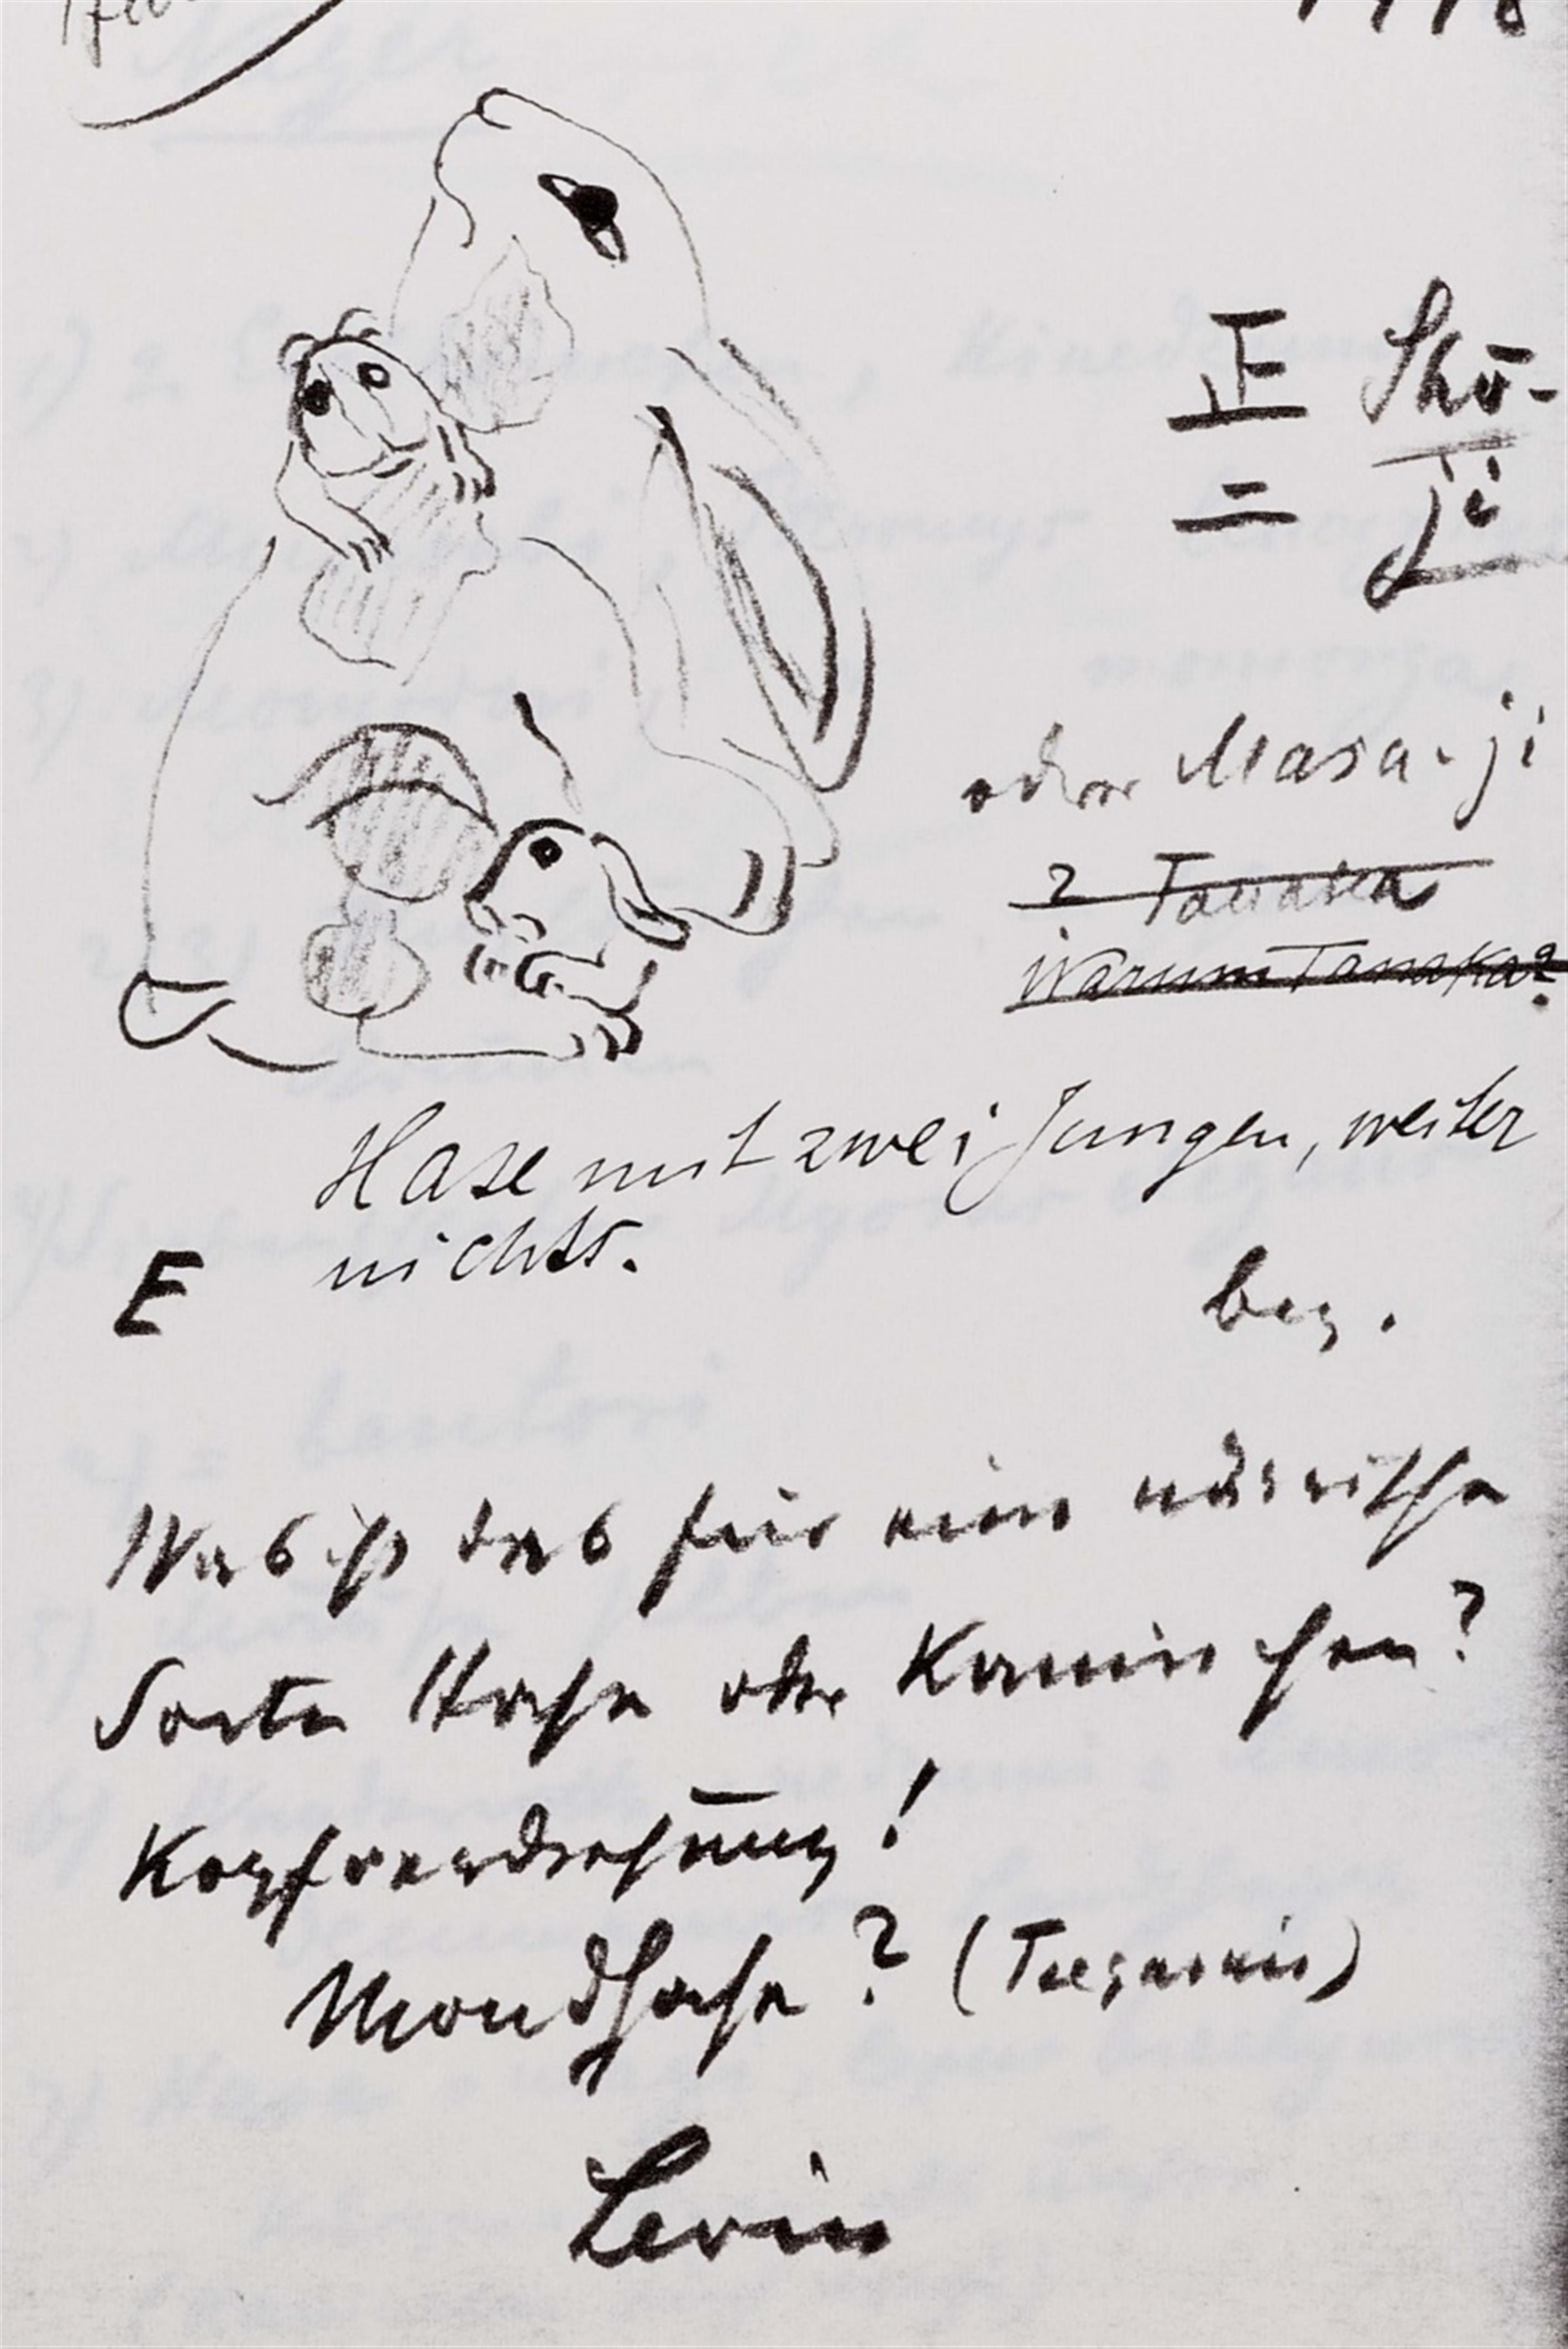 正 Shō-
二 ji
oder Masa-ji
? Tanaka
Warum Tanaka?
Hase mit zwei Jungen, weiter
nichts.
E
bez.
Was ist das für eine närrische
Sorte Hase oder Kaninchen?
Kopfverdrehung!
Mondhase? (Netsuke)